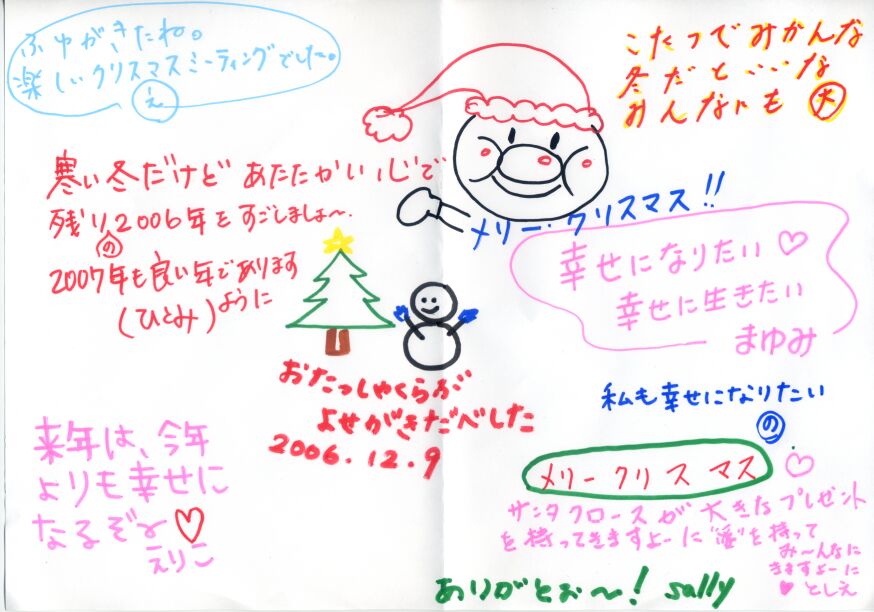 ふゆがきたね。
楽しいクリスマスミーティングでした。
え
こたつでみかんな
冬だといいな
みんなにも 大
寒い冬だけど あたたかい心で
残り2006年をすごしましょ〜。
の
2007年も良い年であります
ように
(ひとみ)
メリー・クリスマス!!
幸せになりたい♡
幸せに生きたい
まゆみ
おたっしゃくらぶ
よせがきだべした
2006.12.9
私も幸せになりたい
の
メリークリスマス
サンタクロースが大きなプレゼント
を持ってきますよーに
を持って
み〜んなに
きますよーに
♥としえ
来年は、今年
よりも幸せに
なるぞ〜♡
えりこ
ありがとぉ〜! sally